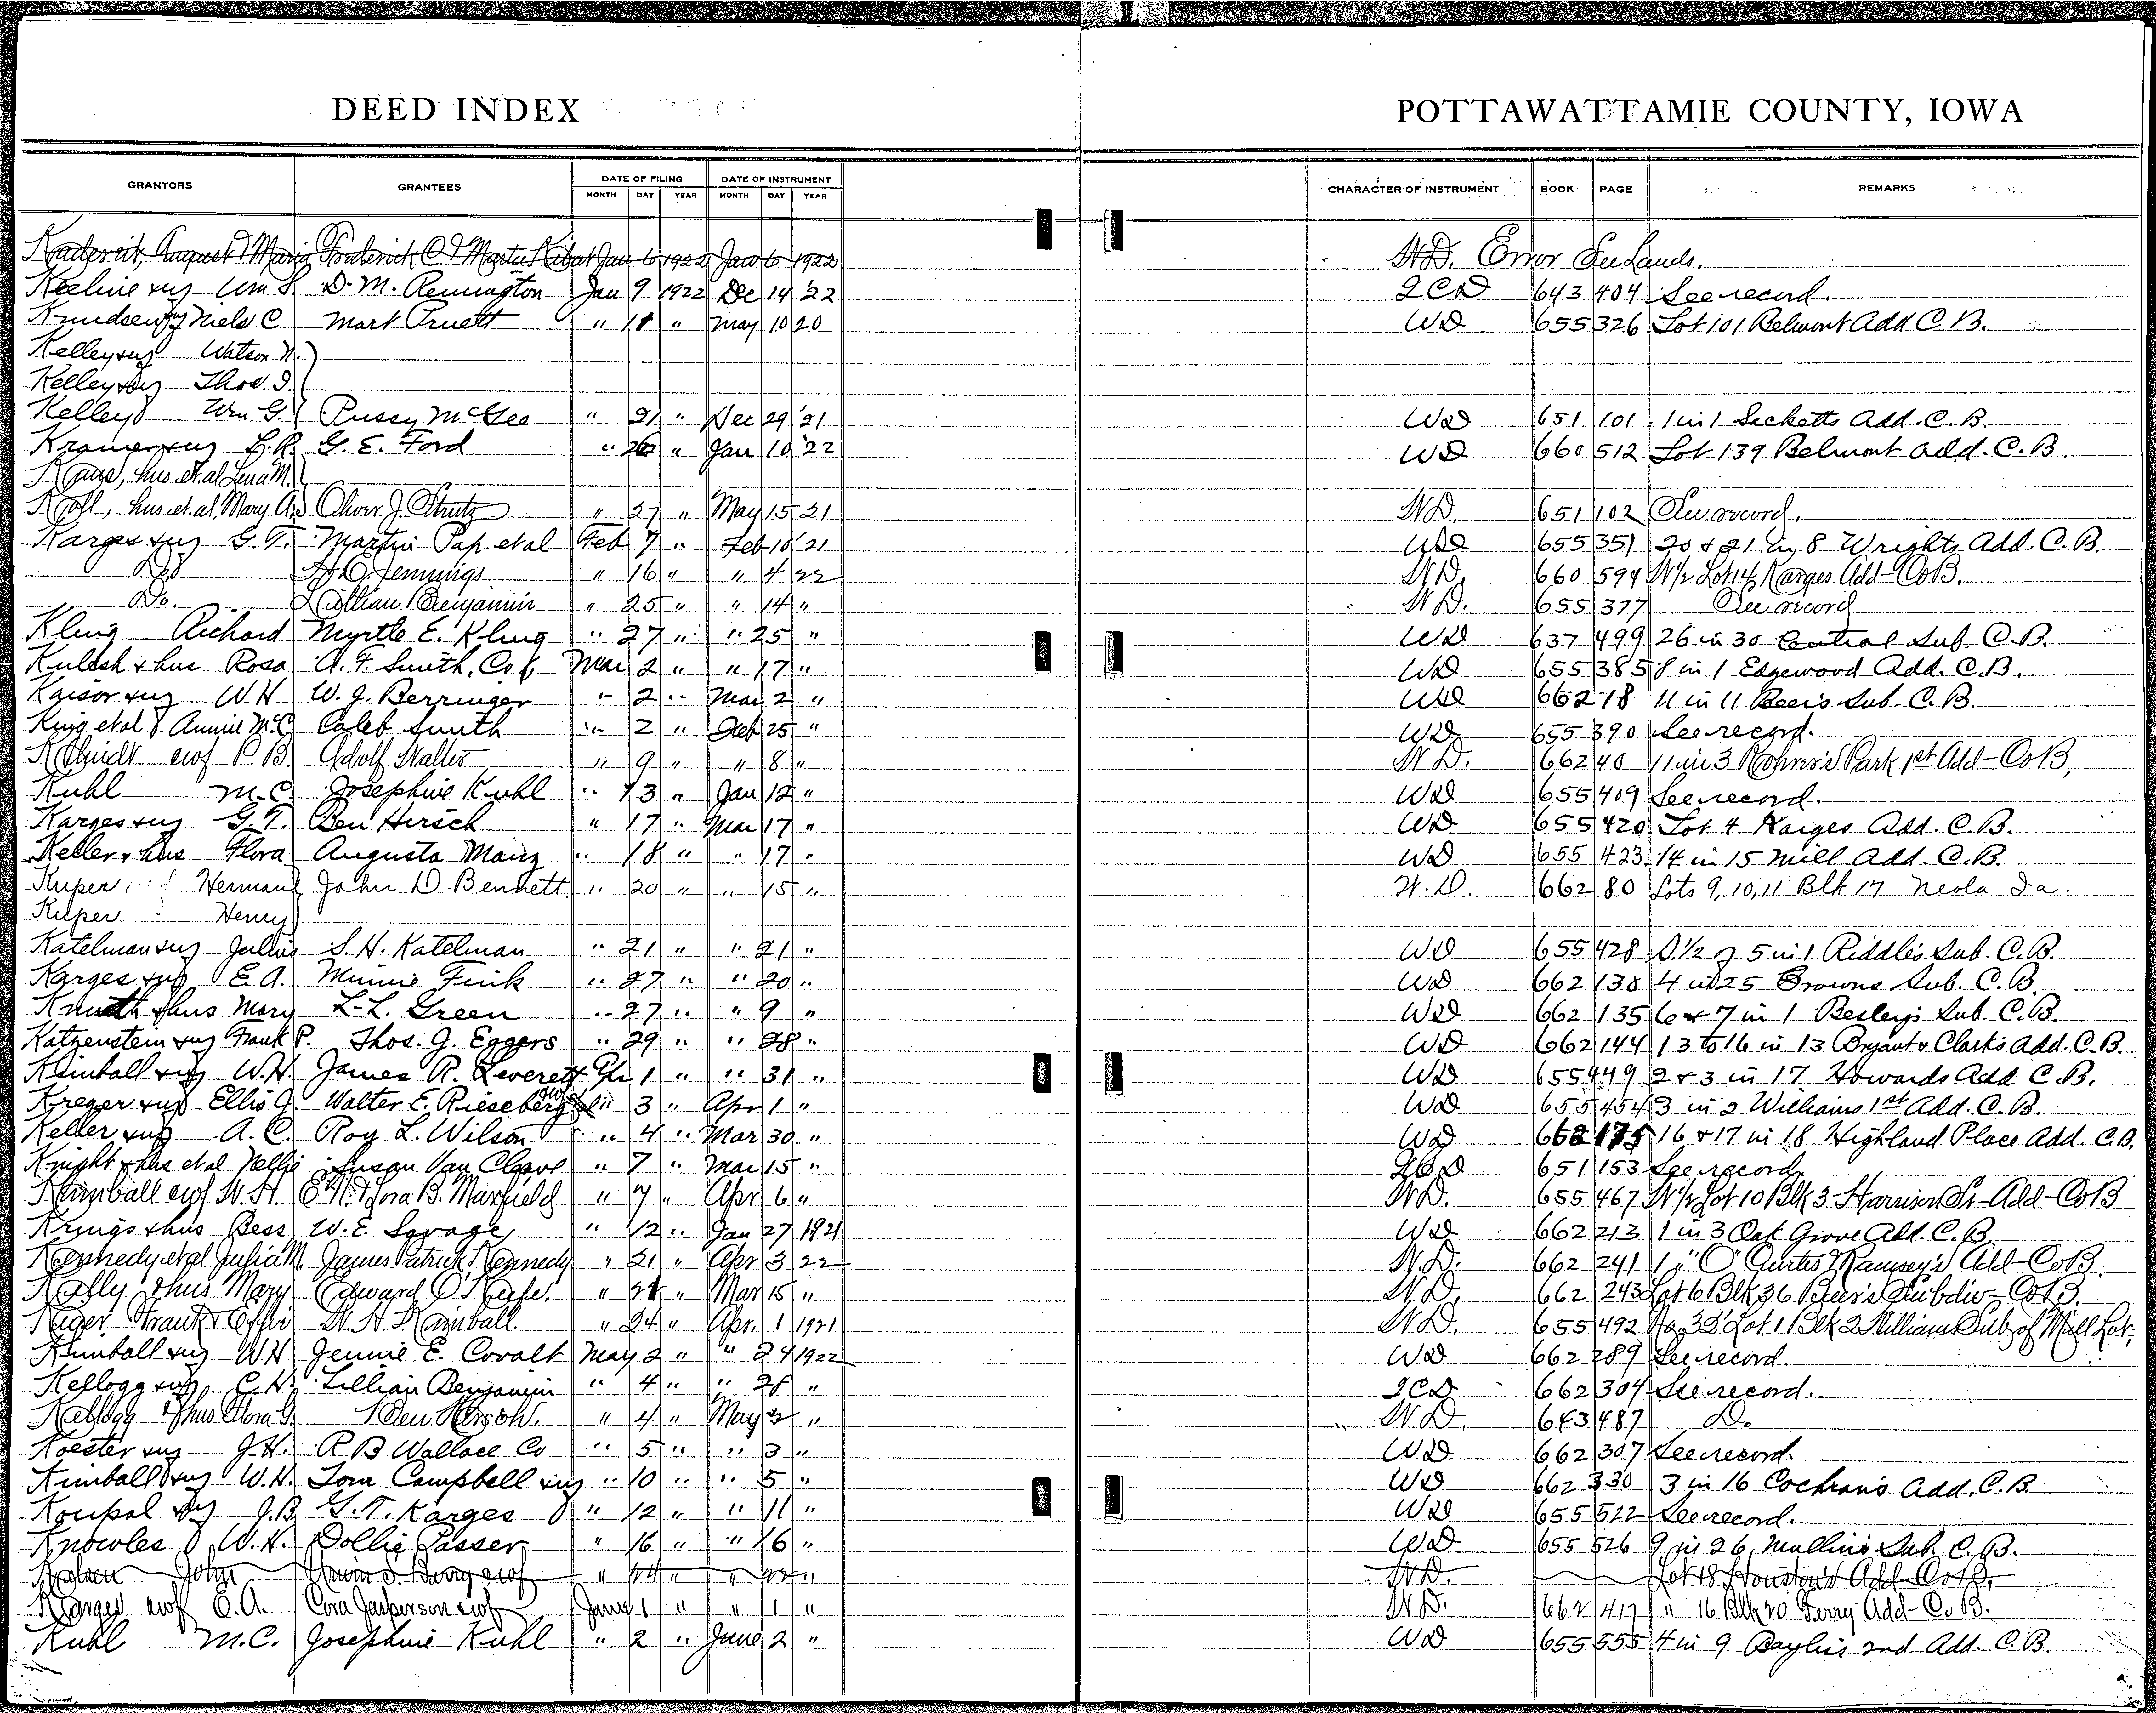 DEED INDEX
POTTAWATTAMIE COUNTY, IOWA
GRANTORS GRANTEES DATE OF FILING DATE OF INSTRUMENT CHARACTER OF INSTRUMENT BOOK PAGE REMARKS
MONTH DAY YEAR MONTH DAY YEAR
August & Maria Frederick C. & Jan 6 1922 Jan 6 1922 W.D. Error See Lands.
Keeline & wf Wm S. D. M. Remington Jan 9 1922 Dec 14 '22 QCD 643 404 See record.
Knudsen & wf Niels C Mark Pruett " 11 " May 10 20 WD 655 326 Lot 101 Belmont Add C.B.
Kelley & wf Watson N.
Kelley & wf Thos. I.
Kelley Wm G. Pusey McGee " 21 " Dec 29 '21 WD 651 101 1 in 1 Sacketts Add. C.B.
Kramer & wf L.R. G. E. Ford " 26 " Jan 10 '22 WD 660 512 Lot 139 Belmont add. C.B.
hus. et al Lena M.
hus. et al, Mary A. Oliver J. " 27 " May 15 21 W.D. 651 102 See record.
Karges & wf G.T. Martin Pap et al Feb 7 " Feb 10 '21 WD 655 351 20 & 21 in 8 Wrights Add. C.B.
Do Jennings " 16 " " 4 22 W.D. 660 594 N½ Lot 14 Karges Add - Co B.
Do. Lillian Benjamin " 25 " " 14 " W.D. 655 377 See record
Kling Richard Myrtle E. Kling " 27 " " 25 " WD 637 499 26 in 30 Central Sub C.B.
Kulesh & hus Rosa A. F. Smith. Co Mar 2 " " 17 " WD 655 385 8 in 1 Edgewood Add. C.B.
Kaiser & wf W H W. J. Berringer " 2 " Mar 2 " WD 662 18 11 in 11 Beers Sub. C.B.
King et al Annie McC. Caleb Smith " 2 " Feb 25 " WD 655 390 See record.
& wf P.B. Adolf Walter " 9 " " 8 " W.D. 662 40 11 in 3 Rohrer's Park 1st Add - Co B,
Kuhl M.C. Josephine Kuhl " 13 " Jan 12 " WD 655 409 See record.
Karges & wf G.T. Ben Hirsch " 17 " Mar 17 " WD 655 420 Lot 4 Karges Add. C.B.
Keller & hus Flora Augusta Manz " 18 " " 17 " WD 655 423 14 in 15 Mill Add. C.B.
Kuper Herman John D. Bennett " 20 " " 15 " W.D. 662 80 Lots 9, 10, 11 Blk 17 Neola Ia.
Kuper Henry
Katelman & wf Julius S. H. Katelman " 21 " " 21 " WD 655 428 S.½ of 5 in 1 Riddle's Sub. C.B.
Karges & wf E.A. Minnie Fink " 27 " " 20 " WD 662 138 4 in 25 Browns Sub. C.B.
Knuth & hus Mary L. L. Green " 27 " " 9 " WD 662 135 6 & 7 in 1 Besley's Sub. C.B.
Katzenstein & wf Frank P. Thos. J. Eggers " 29 " " 28 " WD 662 144 13 to 16 in 13 Bryant & Clark's Add. C.B.
Kimball & wf W.H. James R. Leverett Apr 1 " " 31 " WD 655 449 2 & 3 in 17 Howards Add C.B.
Kreger & wf Ellis J. Walter E. Rieseberg & wf " 3 " Apr 1 " WD 655 454 3 in 2 Williams 1st Add. C.B.
Keller & wf A.C. Roy L. Wilson " 4 " Mar 30 " WD 662 175 16 & 17 in 18 Highland Place Add. C.B.
Knight & hus et al Nellie Susan Van Cleave " 7 " Mar 15 " QCD 651 153 See record.
Kimball & wf W. H. E. N. & Lora B. Maxfield " 7 " Apr 6 " W.D. 655 467 N½ Lot 10 Blk 3 - Harrison St. Add - Co B
Krings & hus Bess W. E. Savage " 12 " Jan 27 1921 WD 662 213 1 in 3 Oak Grove Add. C.B.
Kennedy et al Julia M. James Patrick Kennedy " 21 " Apr 3 22 W.D. 662 241 1 " "O" Curtis & Ramsey's Add - Co B.
Kelly & hus Mary Edward O'Keefe. " 21 " Mar 15 " W.D. 662 243 Lot 6 Blk 36 Beer's Subdiv - Co B.
Frank & Effie W. H. Kimball " 24 " Apr. 1 1921 W.D. 655 492 Lot 1 Blk 2 Williams Sub of Mill Lot,
Kimball & wf W H Jennie E. Covalt May 2 " " 24 1922 WD 662 289 See record
Kellogg & wf C.H. Lillian Benjamin " 4 " " 28 " QCD 662 304 See record.
Kellogg & hus Flora G. Ben Hirsch. " 4 " May 2 " W.D. 643 487 Do
Koester & wf J.H. R B Wallace Co " 5 " " 3 " WD 662 307 See record.
Kimball & wf W.H. Tom Campbell & wf " 10 " " 5 " WD 662 330 3 in 16 Cochran's Add. C.B.
Koupal & wf J.B G. T. Karges " 12 " " 11 " WD 655 522 See record.
Knowles W.H. Dollie Passer " 16 " " 16 " WD 655 526 9 in 26 Mullin's Sub. C.B.
John Berry & wf " 24 " " 22 " W.D. Lot 18 Houston's Add - Co B.
Karges & wf E.A. Cora Jasperson & wf June 1 " " 1 " W.D. 662 417 " 16 Blk 20 Ferry Add - Co B.
Kuhl M.C. Josephine Kuhl " 2 " June 2 " WD 655 555 4 in 9 Bayliss 2nd Add. C.B.